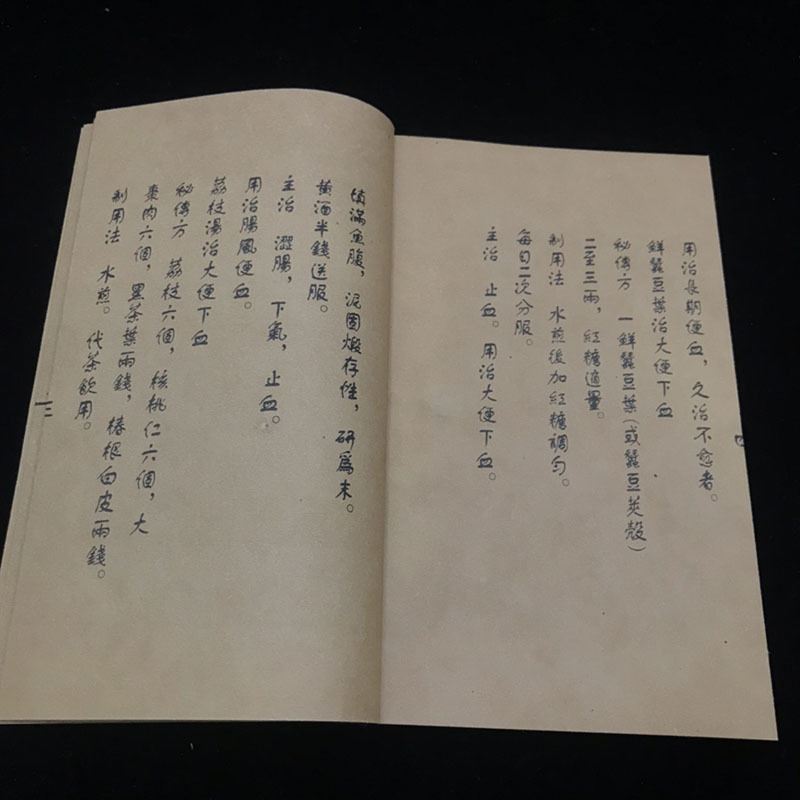 填滿魚腹，泥固煅存性，研爲末。
黃酒半錢送服。
主治 澀腸，下氣，止血。
用治腸風便血。
荔枝湯治大便下血
秘傳方 荔枝六個，核桃仁六個，大
棗肉六個，黑茶葉兩錢，椿根白皮兩錢。
制用法 水煎。代茶飲用。
三
用治長期便血，久治不愈者。
鮮蠶豆葉治大便下血
秘傳方 一鮮蠶豆葉（或蠶豆莢殼）
二至三兩，紅糖適量。
制用法 水煎後加紅糖調勻。
每日二次分服。
主治 止血。用治大便下血。
四